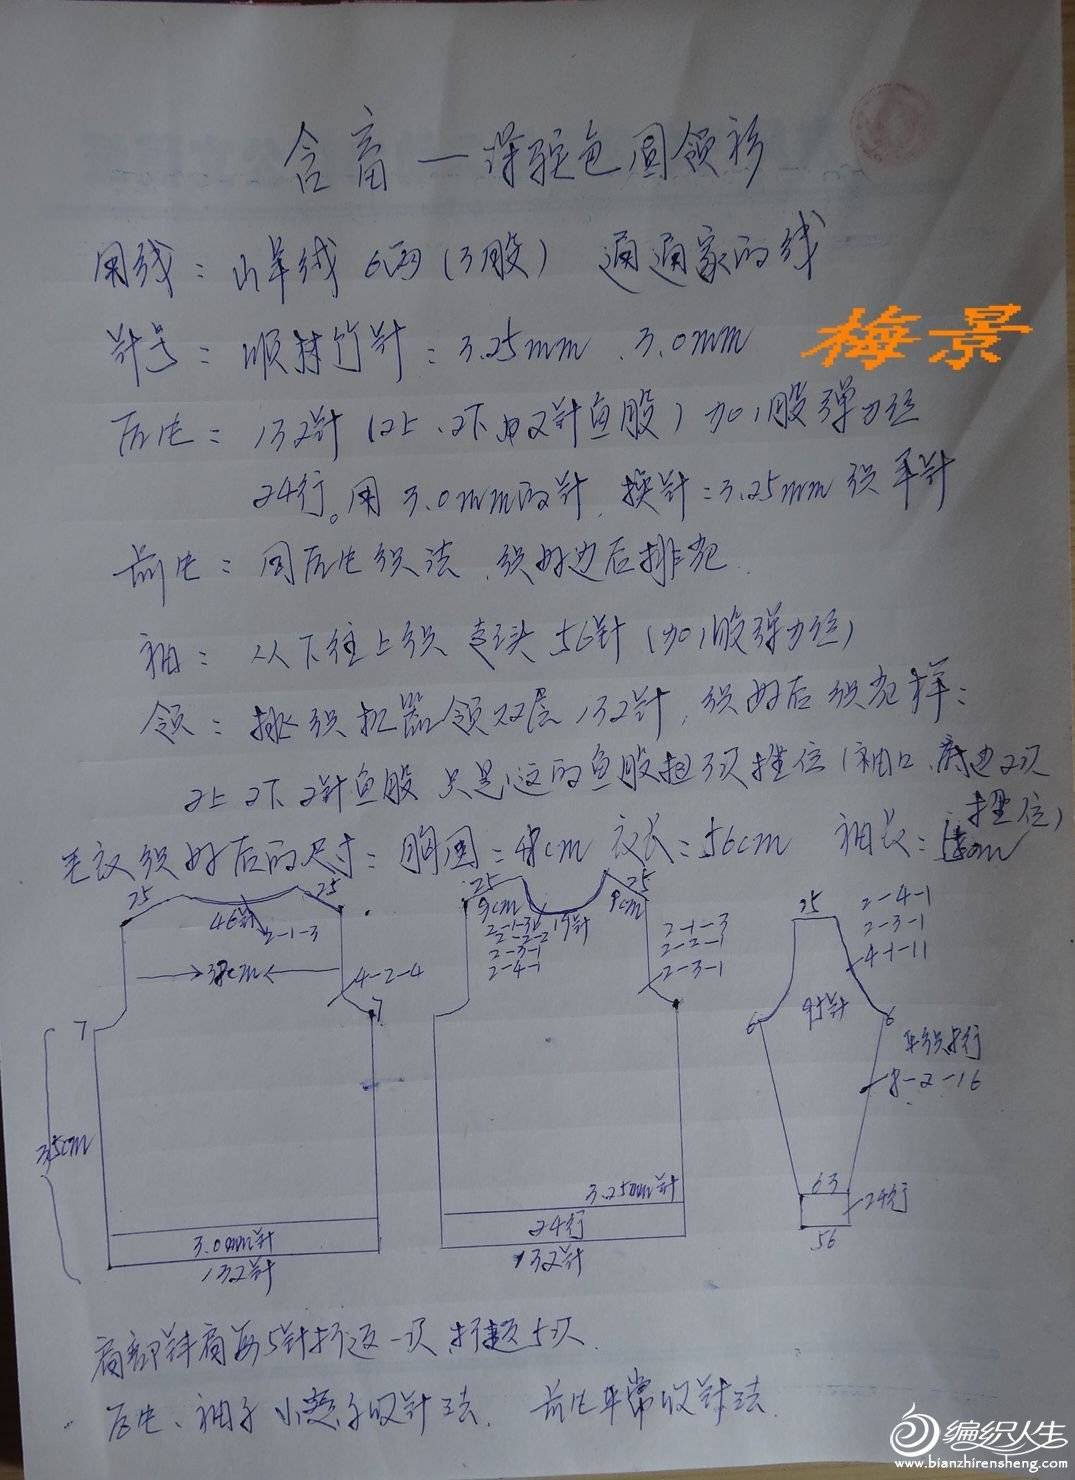 含蓄—深驼色圆领衫
用线：山羊绒 6两（3股） 通通家的线
针号：顺林竹针：3.25mm、3.0mm
梅景
后片：132针（2上、2下、中2针鱼股）加1股弹力丝
24行。用3.0mm的针，换针：3.25mm织平针
前片：同后片织法，织好边后排花
袖：从下往上织 起头56针（加1股弹力丝）
领：挑织机器领双层132针，织好后织花样：
2上2下2针鱼股 只是这的鱼股扭3次 （袖口、底边2次
毛衣织好后的尺寸：胸围：48cm 衣长：56cm 袖长：
25 25 25 25 25 2-4-1
46针 9cm 19针 9cm 2-3-1
2-1-3 2-1-3 2-1-3 4-1-11
2-2-2 2-2-1
2-3-1 2-3-1
2-4-1
cm 4-2-4 95针
7 7 6 6
平织8行
8-2-16
35cm
3.25mm针 63
24行 24行
3.0mm针 56
132针 132针
肩部斜肩每5针折返一次，折返5次
后片、袖子小燕子收针法，前片平常收针法
编织人生
www.bianzhirensheng.com